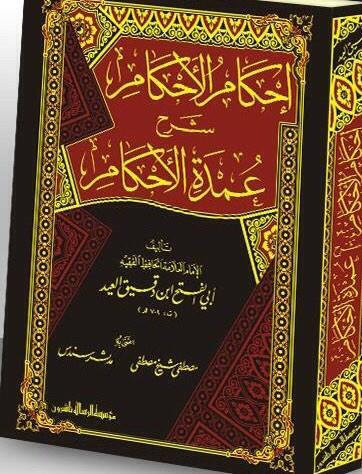 إحكام الأحكام
شرح
عمدة الأحكام
تأليف
الإمام العلامة الحافظ الفقيه
أبي الفتح ابن دقيق العيد
(ت: ٧٠٢ هـ)
تحقيق
مصطفى شيخ مصطفى مدثر سندس
مؤسسة الرسالة ناشرون
إحكام الأحكام شرح عمدة الأحكام